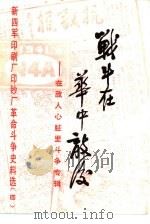 新四军印刷厂印钞厂革命斗争史料选（四）
战斗在
华中敌后
——在敌人心脏里斗争专辑